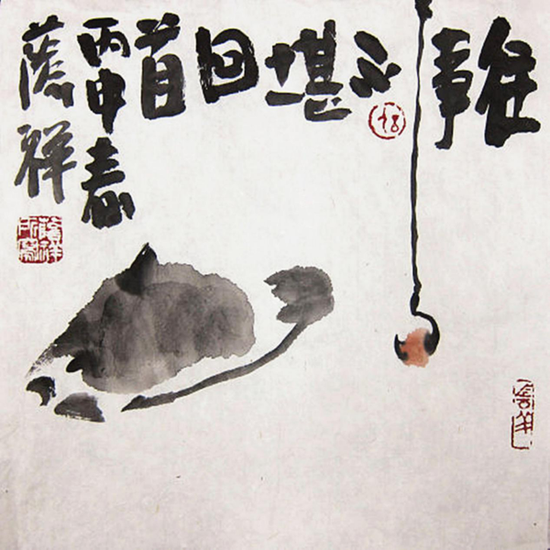 往事不堪回首
丙申春
蔭祥